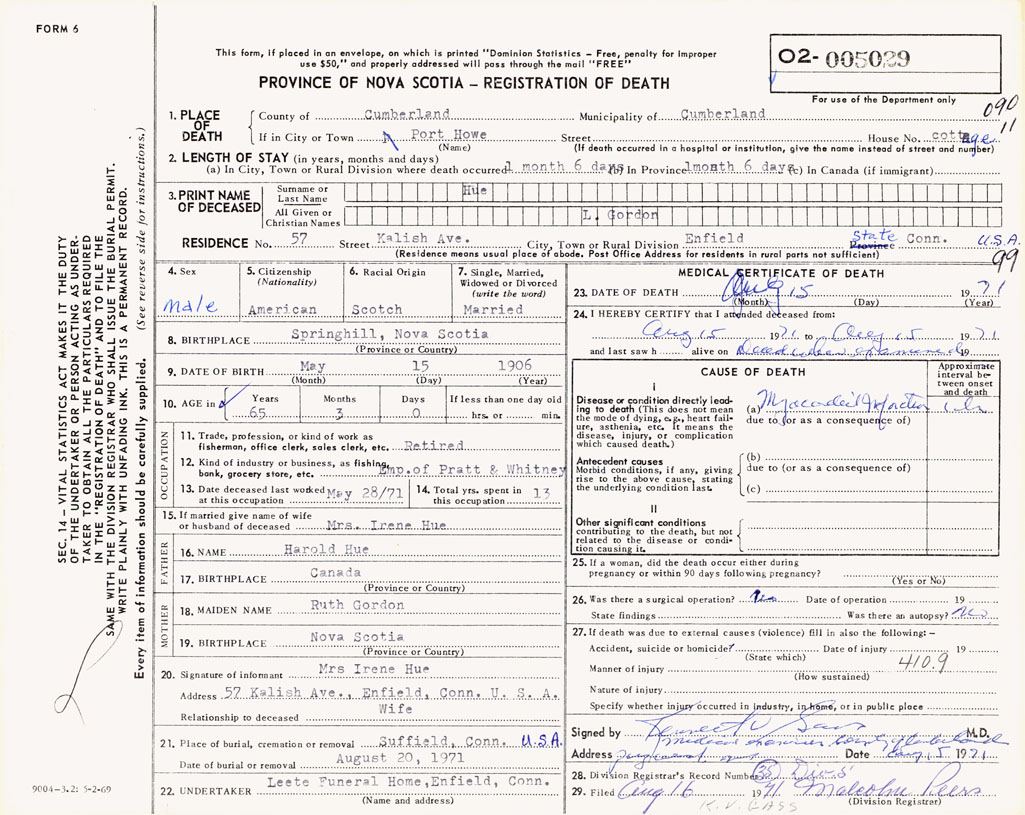 FORM 6
This form, if placed in an envelope, on which is printed "Dominion Statistics – Free, penalty for improper
use $50," and properly addressed will pass through the mail "FREE"
PROVINCE OF NOVA SCOTIA – REGISTRATION OF DEATH
02- 005029
For use of the Department only
090
11
1. PLACE OF DEATH
County of Cumberland Municipality of Cumberland
If in City or Town Port Howe Street House No. cottage
(Name) (If death occurred in a hospital or institution, give the name instead of street and number)
2. LENGTH OF STAY (in years, months and days)
(a) In City, Town or Rural Division where death occurred 1 month 6 days (b) In Province 1month 6 days (c) In Canada (if immigrant)
3. PRINT NAME OF DECEASED
Surname or Last Name Hue
All Given or Christian Names L. Gordon
RESIDENCE No. 57 Street Kalish Ave. City, Town or Rural Division Enfield State Province Conn. U.S.A.
(Residence means usual place of abode. Post Office Address for residents in rural parts not sufficient)
99
4. Sex
Male
5. Citizenship
(Nationality)
American
6. Racial Origin
Scotch
7. Single, Married,
Widowed or Divorced
(write the word)
Married
8. BIRTHPLACE Springhill, Nova Scotia
(Province or Country)
9. DATE OF BIRTH May 15 1906
(Month) (Day) (Year)
10. AGE in Years Months Days If less than one day old
65 3 0 hrs. or min.
OCCUPATION
11. Trade, profession, or kind of work as
fisherman, office clerk, sales clerk, etc. Retired
12. Kind of industry or business, as fishing,
bank, grocery store, etc. Emp.of Pratt & Whitney
13. Date deceased last worked
at this occupation May 28/71
14. Total yrs. spent in
this occupation 13
15. If married give name of wife
or husband of deceased Mrs. Irene Hue
FATHER
16. NAME Harold Hue
17. BIRTHPLACE Canada
(Province or Country)
MOTHER
18. MAIDEN NAME Ruth Gordon
19. BIRTHPLACE Nova Scotia
(Province or Country)
20. Signature of informant Mrs Irene Hue
Address 57 Kalish Ave., Enfield, Conn. U. S. A.
Relationship to deceased Wife
21. Place of burial, cremation or removal Suffield, Conn. U.S.A.
Date of burial or removal August 20, 1971
22. UNDERTAKER Leete Funeral Home,Enfield, Conn.
(Name and address)
MEDICAL CERTIFICATE OF DEATH
23. DATE OF DEATH Aug 15 1971
(Month) (Day) (Year)
24. I HEREBY CERTIFY that I attended deceased from:
Aug 15 1971 to Aug 15 1971
and last saw h alive on Dead when examined 19
CAUSE OF DEATH
Approximate
interval be-
tween onset
and death
I
Disease or condition directly lead-
ing to death (This does not mean
the mode of dying, e.g., heart fail-
ure, asthenia, etc. It means the
disease, injury, or complication
which caused death.)
(a) Myocardial Infarction
due to (or as a consequence of)
Antecedent causes
Morbid conditions, if any, giving
rise to the above cause, stating
the underlying condition last.
(b)
due to (or as a consequence of)
(c)
II
Other significant conditions
contributing to the death, but not
related to the disease or condi-
tion causing it.
25. If a woman, did the death occur either during
pregnancy or within 90 days following pregnancy?
(Yes or No)
26. Was there a surgical operation? No Date of operation 19
State findings Was there an autopsy? No
27. If death was due to external causes (violence) fill in also the following:–
Accident, suicide or homicide? Date of injury 19
(State which)
410.9
Manner of injury
(How sustained)
Nature of injury
Specify whether injury occurred in industry, in home, or in public place
Signed by M.D.
Medical Examiner Cumberland
Address Date Aug 15 1971
28. Division Registrar's Record Number 38
29. Filed Aug 16 1971 Malcolm Peers
(Division Registrar)
K.V. GASS
SEC. 14 – VITAL STATISTICS ACT MAKES IT THE DUTY
OF THE UNDERTAKER OR PERSON ACTING AS UNDER-
TAKER TO OBTAIN ALL THE PARTICULARS REQUIRED
IN THE "REGISTRATION OF DEATH" AND TO FILE THE
SAME WITH THE DIVISION REGISTRAR WHO SHALL ISSUE THE BURIAL PERMIT.
WRITE PLAINLY WITH UNFADING INK. THIS IS A PERMANENT RECORD.
Every item of information should be carefully supplied. (See reverse side for instructions.)
9004-3.2: 5-2-69